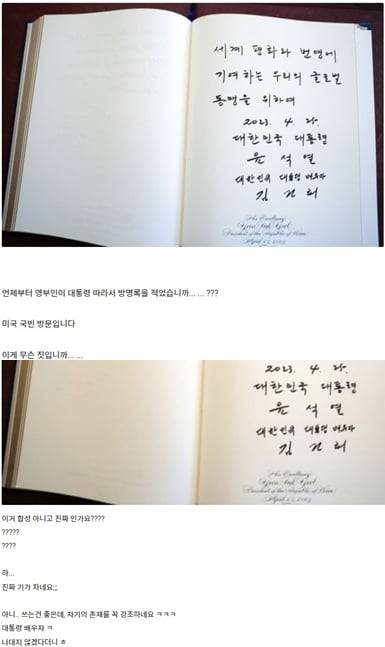 세계 평화와 번영에
기여하는 우리의 글로벌
동맹을 위하여
2023. 4. 25.
대한민국 대통령
윤 석 열
대한민국 대통령 배우자
김 건 희
His Excellency
Yoon Suk Yeol
President of the Republic of Korea
April 25, 2023
언제부터 영부인이 대통령 따라서 방명록을 적었습니까... ... ???
미국 국빈 방문입니다
이게 무슨 짓입니까... ...
2023. 4. 25.
대한민국 대통령
윤 석 열
대한민국 대통령 배우자
김 건 희
His Excellency
Yoon Suk Yeol
President of the Republic of Korea
April 25, 2023
이거 합성 아니고 진짜 인가요????
?????
????
하...
진짜 기가 차네요;;;
아니.. 쓰는건 좋은데, 자기의 존재를 꼭 강조하네요 ㅋㅋㅋ
대통령 배우자 ㅋ
나대지 않겠다더니 ㅎ